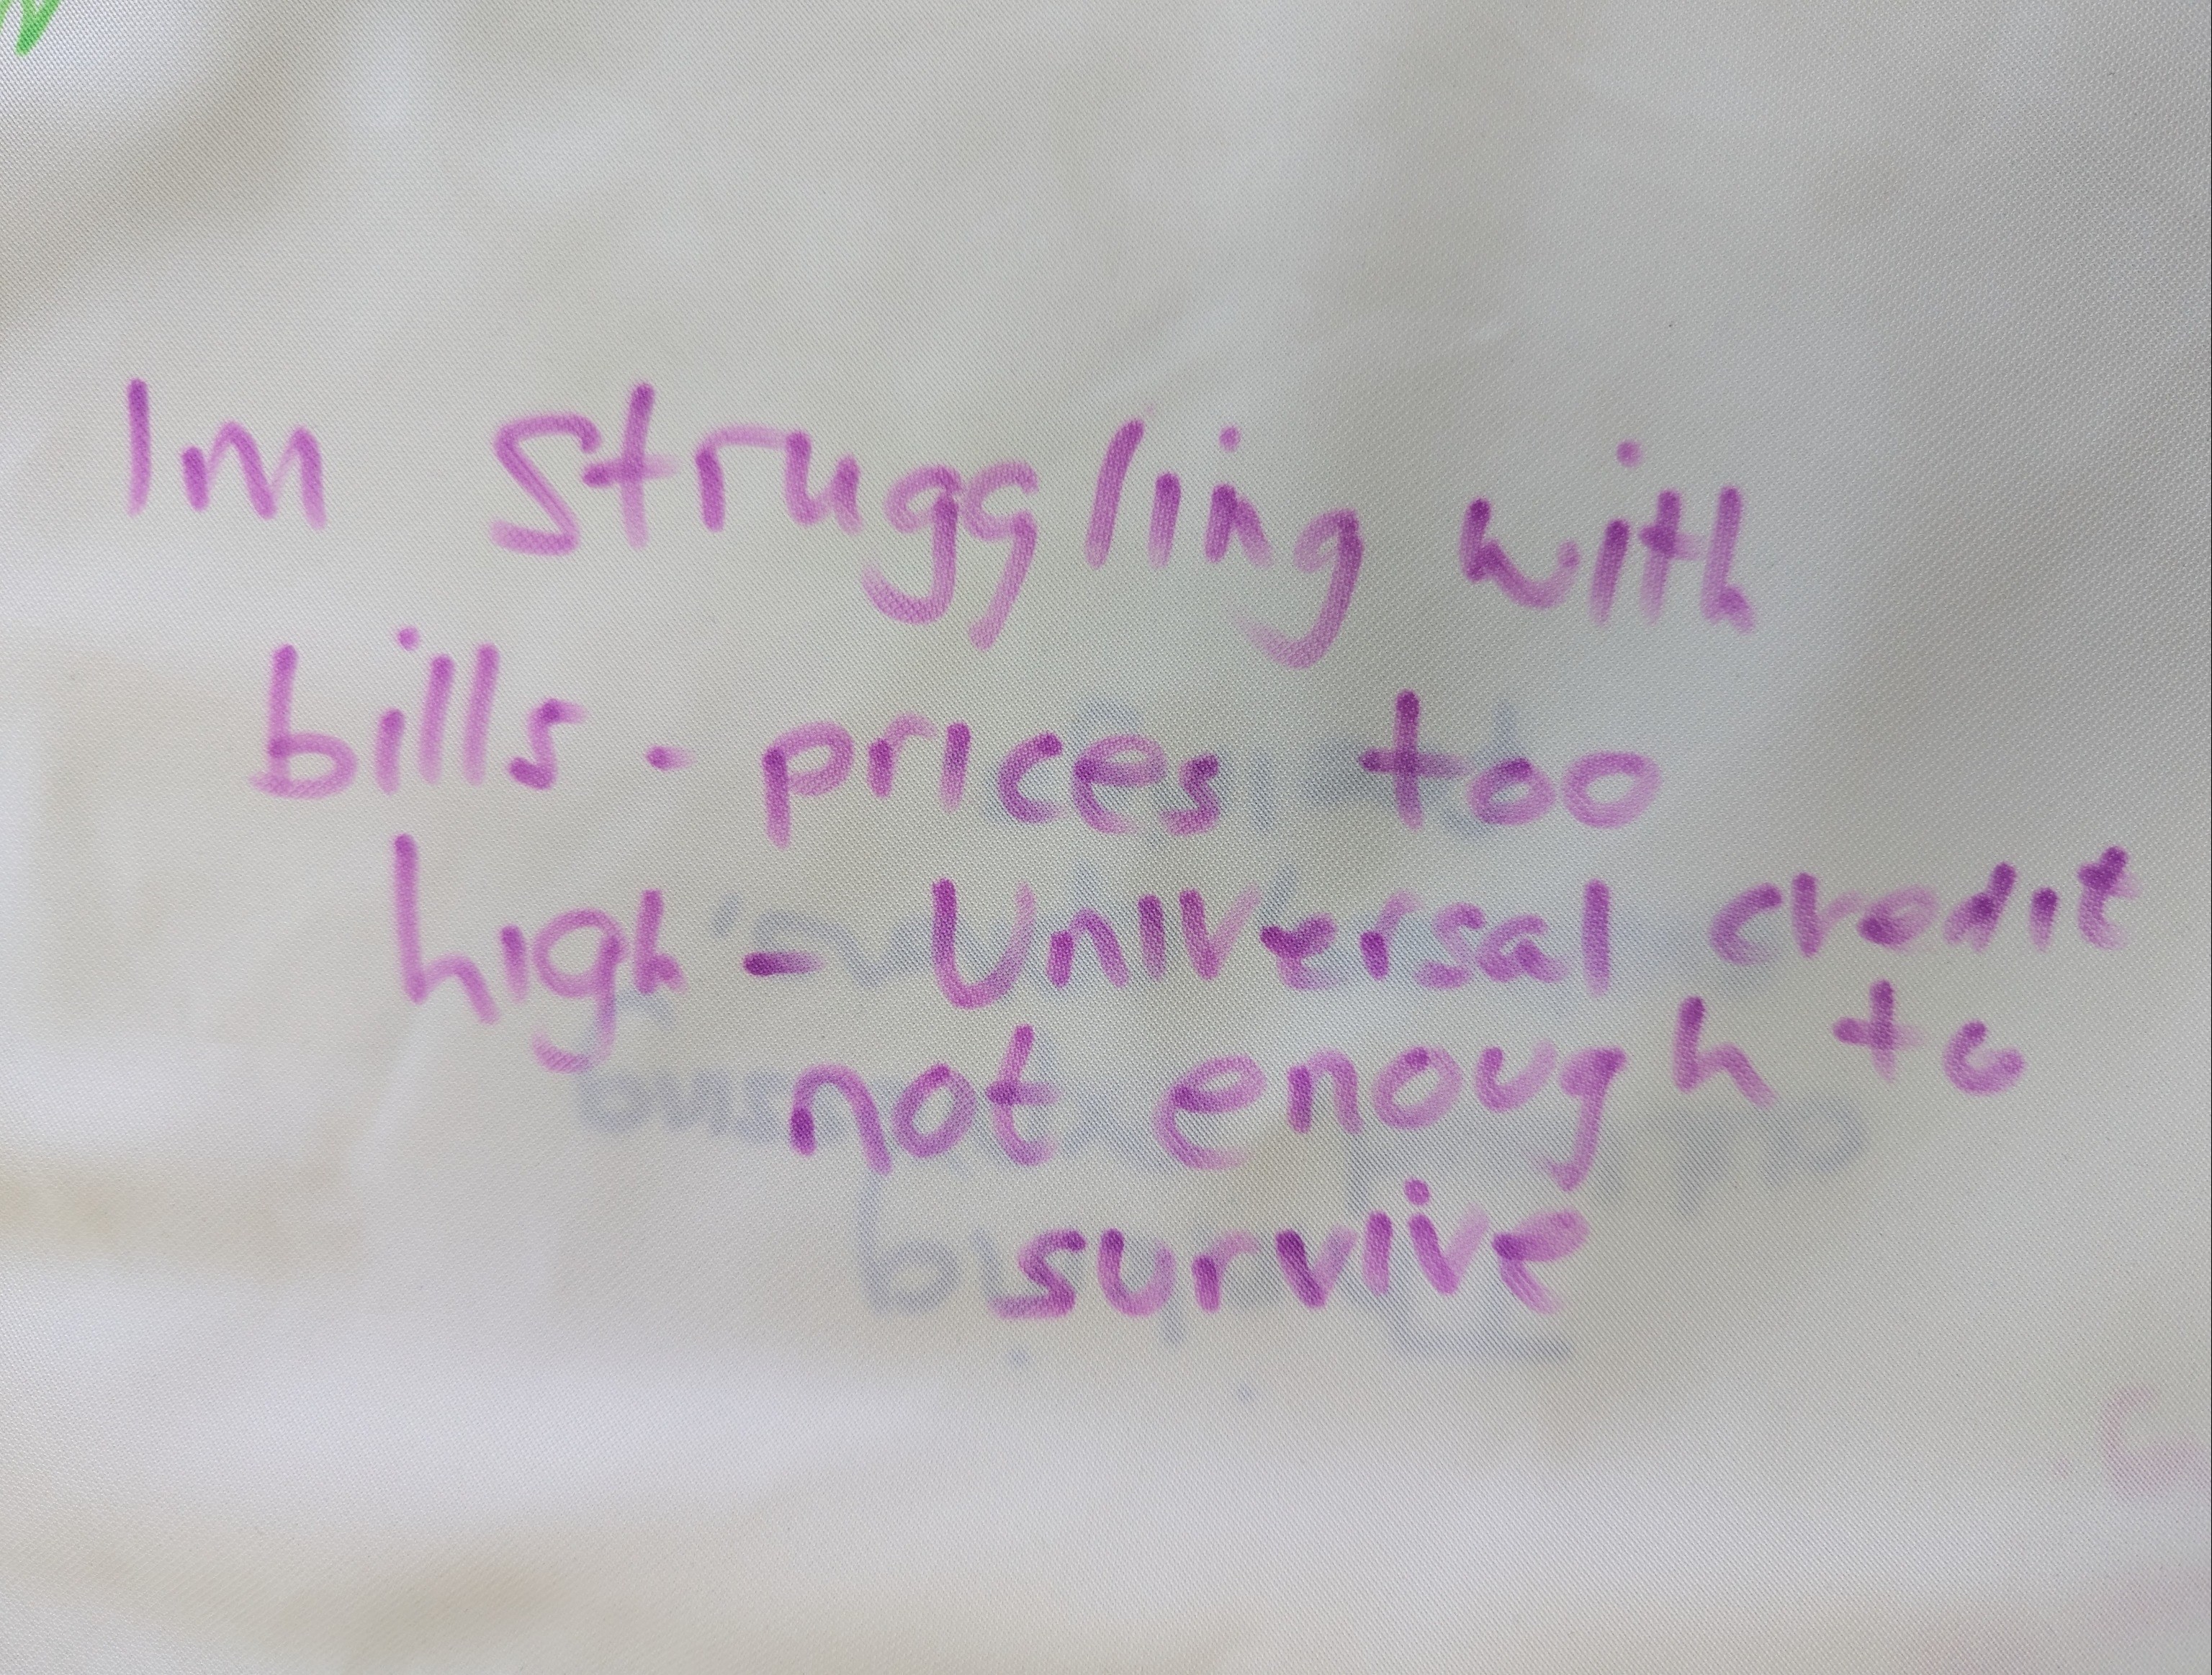 Im struggling with
bills - prices too
high - Universal credit
not enough to
survive